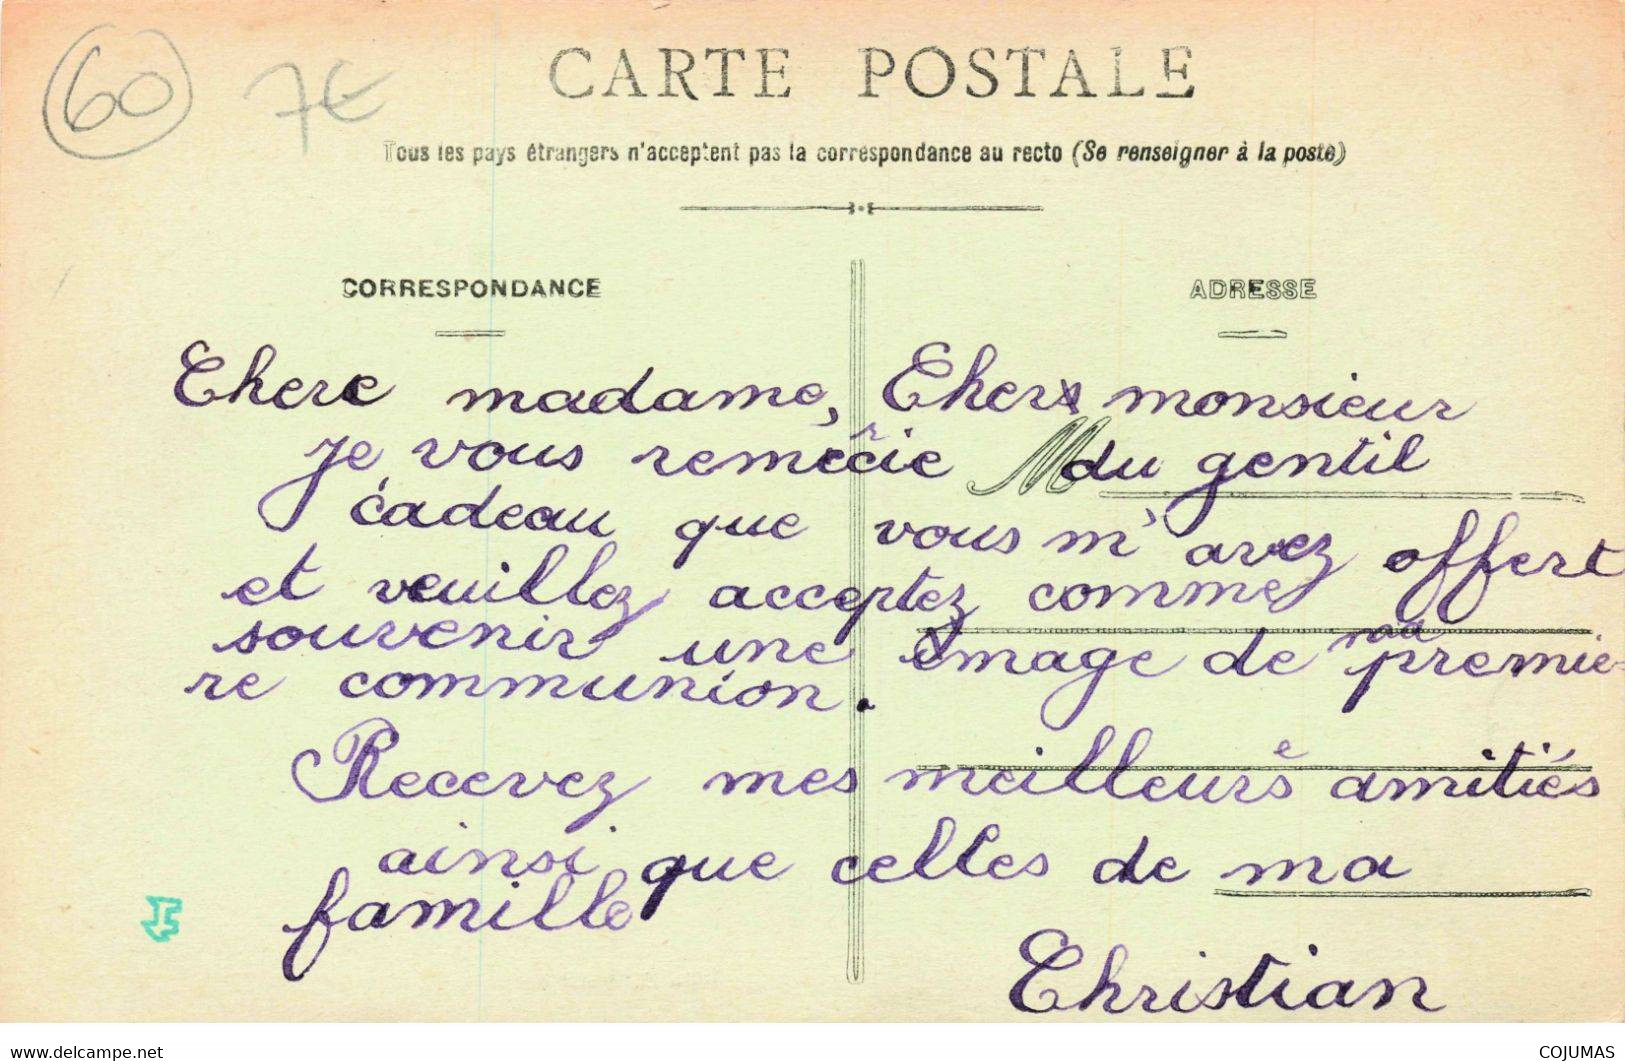 60 7€
CARTE POSTALE
Tous les pays étrangers n'acceptent pas la correspondance au recto (Se renseigner à la poste)
CORRESPONDANCE
ADRESSE
Chere madame, Cher monsieur
je vous remercie du gentil
M
cadeau que vous m'avez offert
et veuillez acceptez comme
souvenir une image de ma premiè-
re communion.
Recevez mes meilleures amitiés
ainsi que celles de ma
famille
Christian
www.delcampe.net
COJUMAS